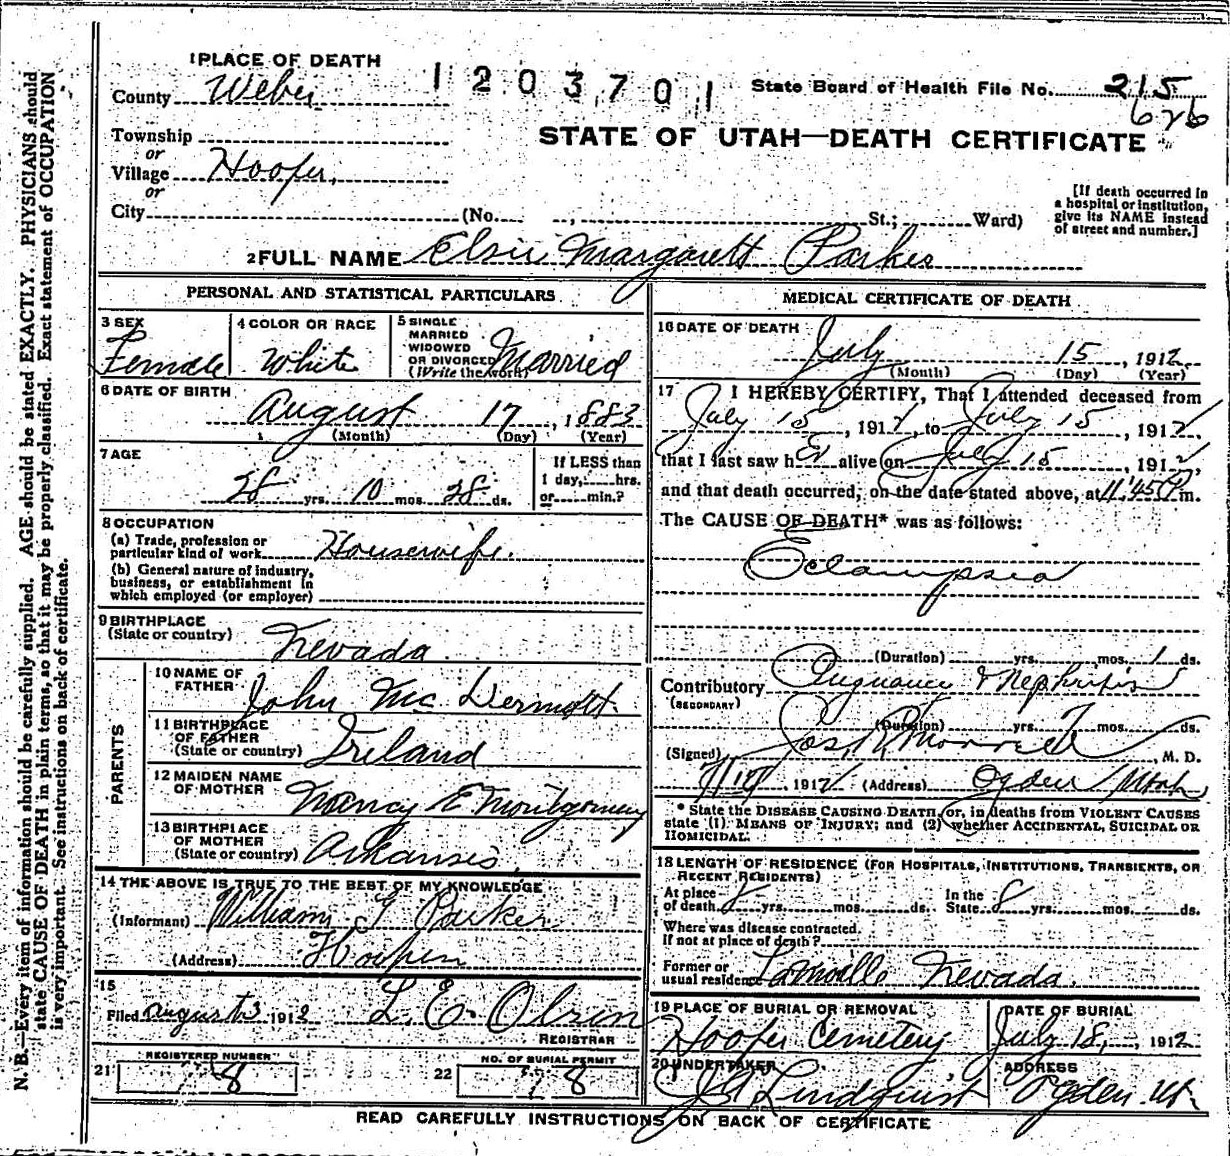 1 PLACE OF DEATH
1 2 0 3 7 0 1
State Board of Health File No. 215
626
County Weber
STATE OF UTAH—DEATH CERTIFICATE
Township
or
Village Hooper,
or
City (No. , St.; Ward)
[If death occurred in
a hospital or institution,
give its NAME instead
of street and number.]
2 FULL NAME Elsie Margarett Parker
PERSONAL AND STATISTICAL PARTICULARS
3 SEX
Female
4 COLOR OR RACE
White
5 SINGLE
MARRIED
WIDOWED
OR DIVORCED
(Write the word)
Married
6 DATE OF BIRTH
August 17, 1883
(Month) (Day) (Year)
7 AGE
28 yrs. 10 mos. 28 ds.
If LESS than
1 day, hrs.
or min.?
8 OCCUPATION
(a) Trade, profession or
particular kind of work Housewife.
(b) General nature of industry,
business, or establishment in
which employed (or employer)
9 BIRTHPLACE
(State or country)
Nevada
PARENTS
10 NAME OF
FATHER
John McDermott
11 BIRTHPLACE
OF FATHER
(State or country) Ireland
12 MAIDEN NAME
OF MOTHER
Nancy E Montgomery
13 BIRTHPLACE
OF MOTHER
(State or country) Arkansis
14 THE ABOVE IS TRUE TO THE BEST OF MY KNOWLEDGE
(Informant) William G Parker
(Address) Hooper
15
Filed August 3 1912 L. E. Olsen
REGISTRAR
21 REGISTERED NUMBER
8
22 NO. OF BURIAL PERMIT
8
MEDICAL CERTIFICATE OF DEATH
16 DATE OF DEATH
July 15, 1912
(Month) (Day) (Year)
17 I HEREBY CERTIFY, That I attended deceased from
July 15, 1912, to July 15, 1912,
that I last saw her alive on July 15, 1912,
and that death occurred, on the date stated above, at 11:45 P m.
The CAUSE OF DEATH* was as follows:
Eclampsia
(Duration) yrs. mos. 1 ds.
Contributory Pregnancy & Nephritis
(SECONDARY)
(Duration) yrs. 7 mos. ds.
(Signed) Jos. R Morrell, M. D.
, 1912 (Address) Ogden Utah
* State the DISEASE CAUSING DEATH, or, in deaths from VIOLENT CAUSES
state (1) MEANS OF INJURY; and (2) whether ACCIDENTAL, SUICIDAL OR
HOMICIDAL.
18 LENGTH OF RESIDENCE (FOR HOSPITALS, INSTITUTIONS, TRANSIENTS, OR
RECENT RESIDENTS)
At place
of death yrs. mos. ds.
In the
State 8 yrs. mos. ds.
Where was disease contracted
If not at place of death?
Former or
usual residence Nevada.
19 PLACE OF BURIAL OR REMOVAL
Hooper Cemetery
DATE OF BURIAL
July 18, 1912
20 UNDERTAKER
Lindquist
ADDRESS
Ogden Ut
READ CAREFULLY INSTRUCTIONS ON BACK OF CERTIFICATE
N. B.—Every item of information should be carefully supplied. AGE should be stated EXACTLY. PHYSICIANS should
state CAUSE OF DEATH in plain terms, so that it may be properly classified. Exact statement of OCCUPATION
is very important. See instructions on back of certificate.